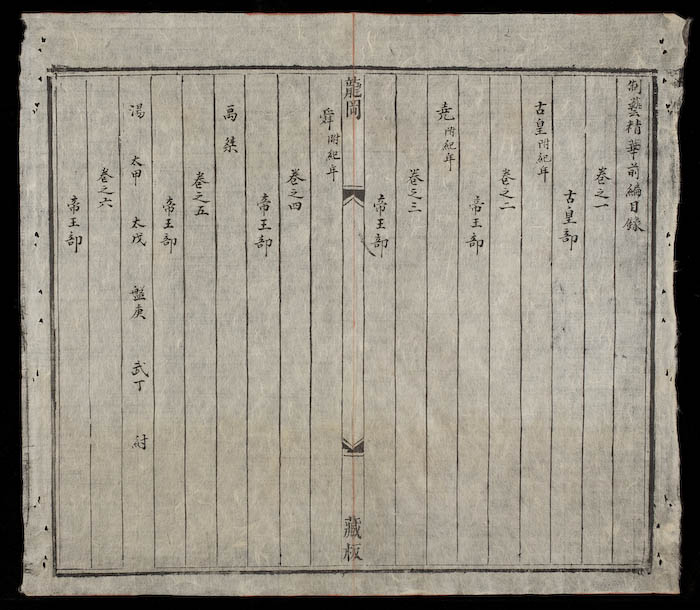 制藝精華前編目錄
卷之一
古皇部
古皇 附紀年
卷之二
帝王部
堯 附紀年
卷之三
帝王部
龍岡
藏板
舜 附紀年
卷之四
帝王部
禹 桀
卷之五
帝王部
湯 太甲 太戊 盤庚 武丁 紂
卷之六
帝王部